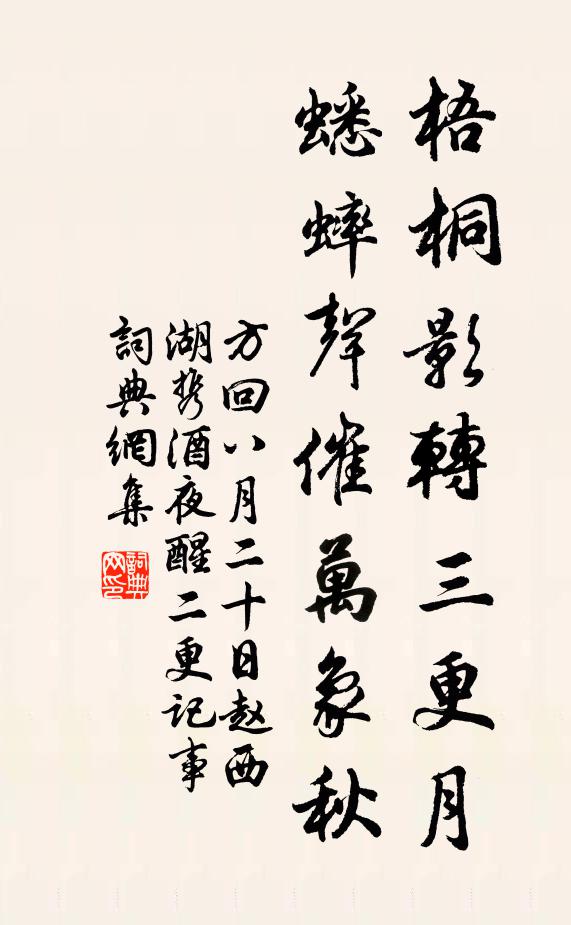 梧桐影轉三更月
蟋蟀聲催萬象秋
方回八月二十日赵西
湖携酒夜醒二更記事
詞典網集
詞典网印